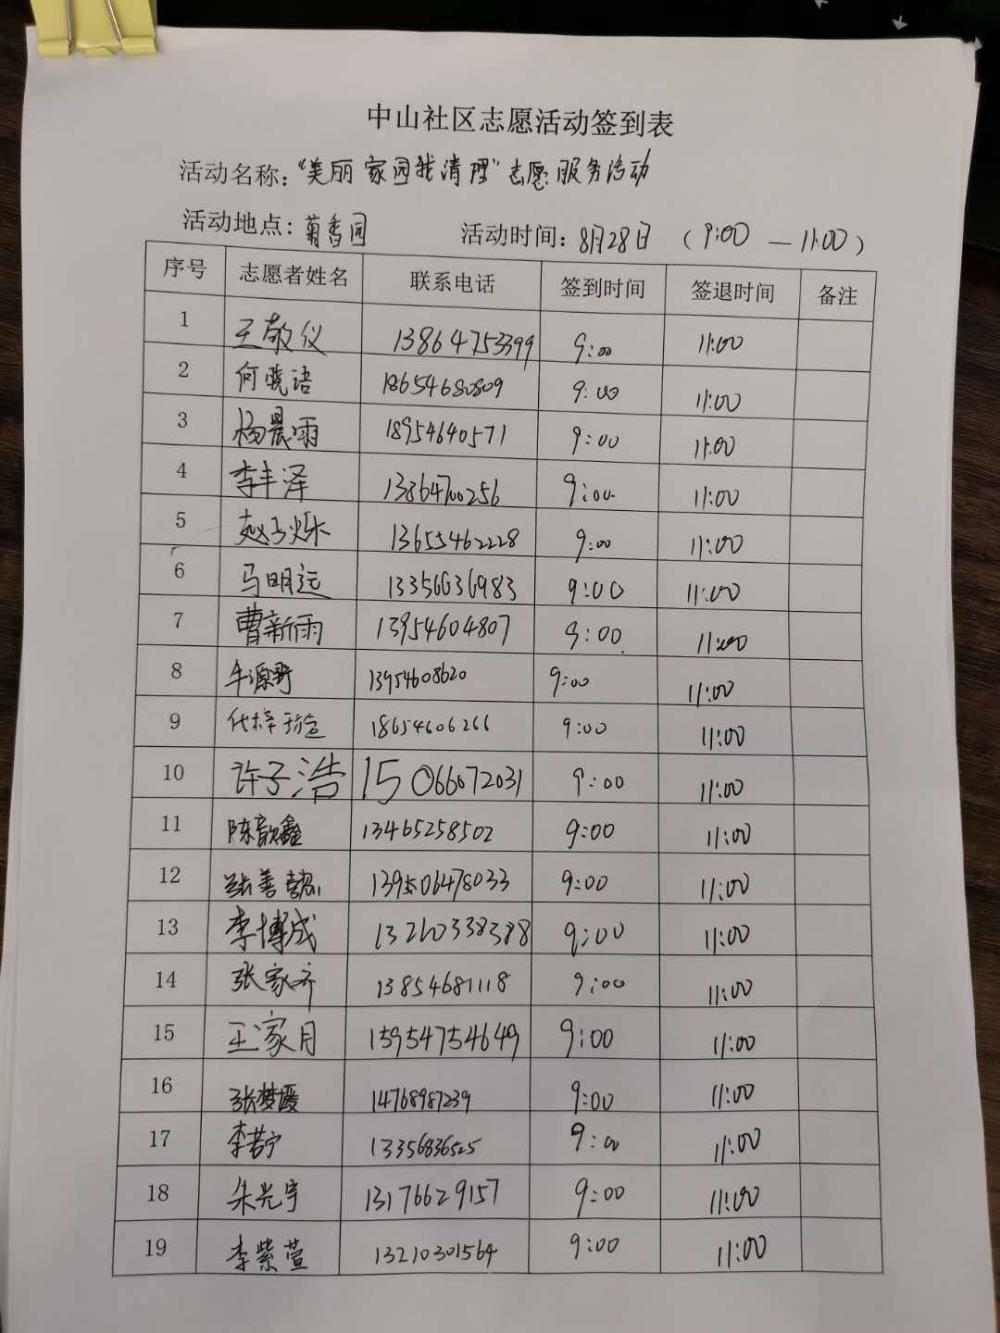 中山社区志愿活动签到表
活动名称："美丽家园我清理"志愿服务活动
活动地点：菊香园 活动时间：8月28日（9:00—11:00）
序号 志愿者姓名 联系电话 签到时间 签退时间 备注
1 王敬仪 13864753399 9:00 11:00
2 何晓语 18654680809 9:00 11:00
3 杨晨雨 18954640571 9:00 11:00
4 李丰泽 13864700256 9:00 11:00
5 赵子烁 13655462228 9:00 11:00
6 马明远 13356636983 9:00 11:00
7 曹新雨 13954604807 9:00 11:00
8 牛源野 13954608620 9:00 11:00
9 代梓瑄 18654606266 9:00 11:00
10 许子浩 15066072031 9:00 11:00
11 陈歆鑫 13465258502 9:00 11:00
12 张善懿 139506478033 9:00 11:00
13 李博成 13210338388 9:00 11:00
14 张家齐 13854681118 9:00 11:00
15 王家月 15954754649 9:00 11:00
16 张梦媛 14768987239 9:00 11:00
17 李若宁 13356836525 9:00 11:00
18 朱光宇 13176629157 9:00 11:00
19 李紫萱 13210301564 9:00 11:00